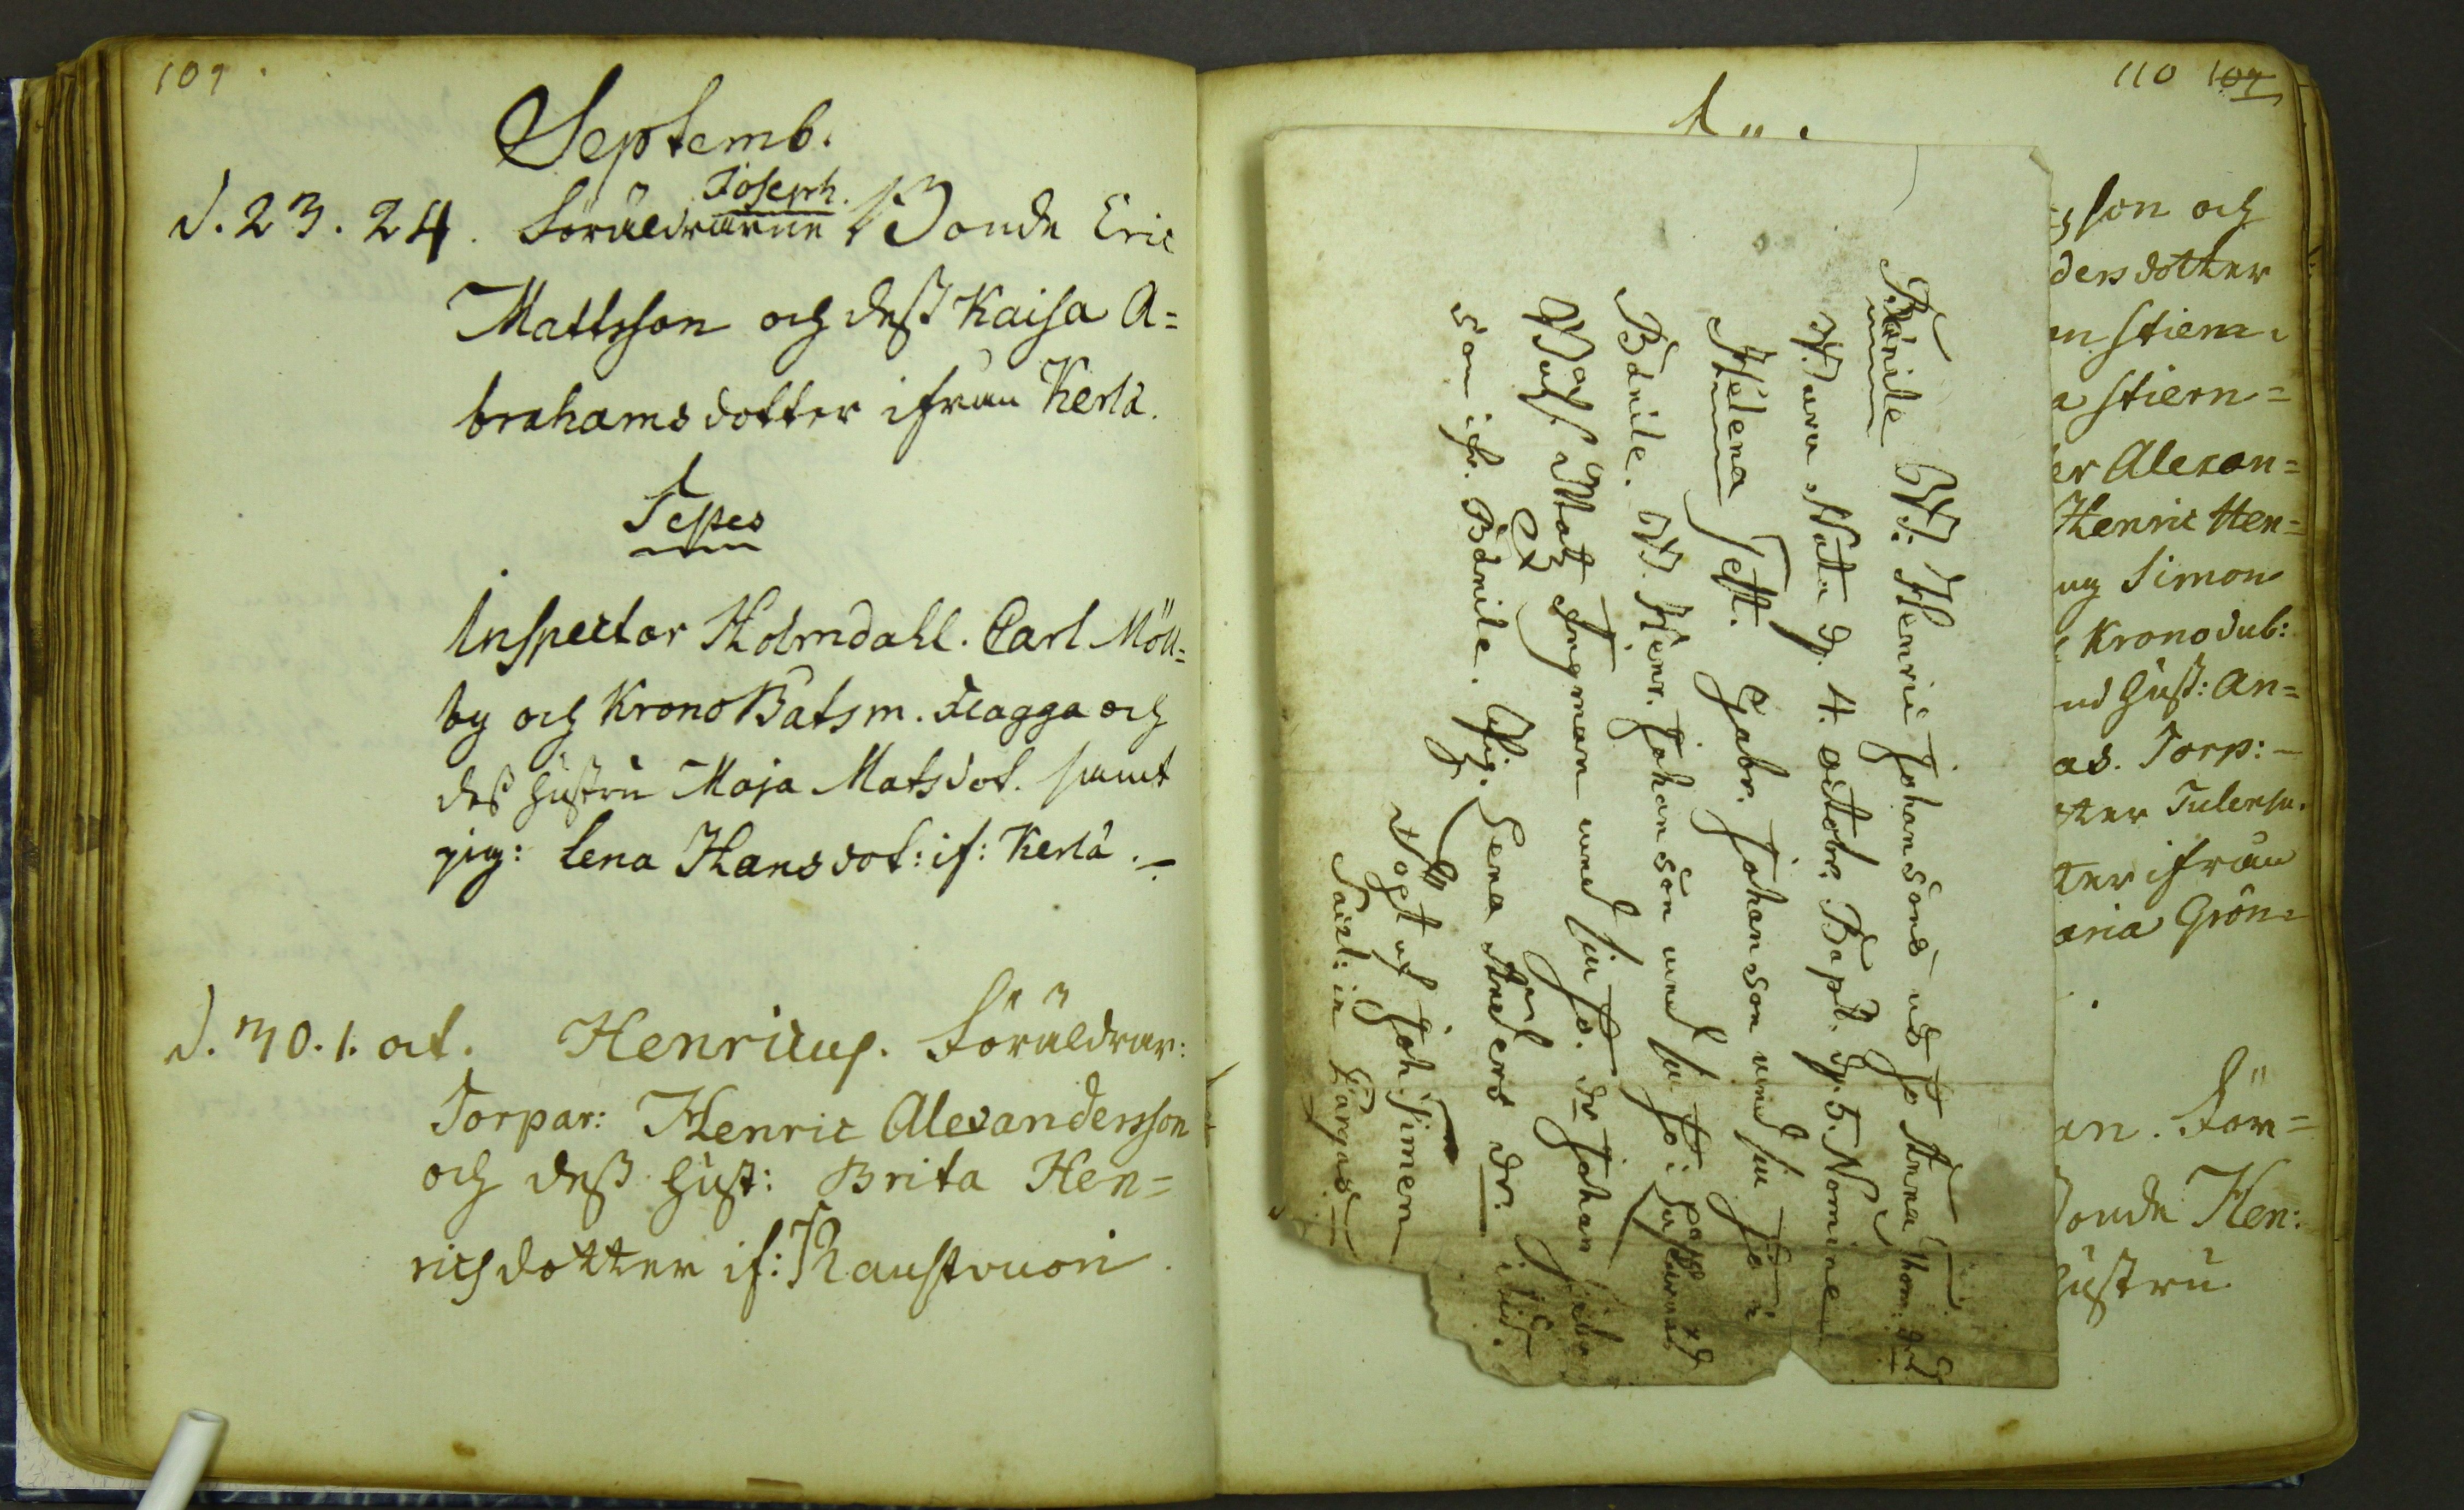 109
Septemb.
Joseph.
d. 23. 24. Föräldrarne Bonde Eric
Mattsson och dess Kaisa A=
brahamsdotter ifrån Kerlä.
Testes
Inspector Holmdahl. Carl Möll=
by och Krono Båtsm. Flagga och
dess hustru Maja Matsdot. samt
pig: Lena Hansdot: if: Kerlä.
d. 30. 1. oct. Henricus. Föräldrar:
Torpar: Henric Alexandersson
och dess hust: Brita Hen=
richsdotter if: Raustvuori.
110 109
Bönile B. Henric Johansons och h. Anna Thom: dr
Barn Natta d. 4. octobr. Bapt. d. 5. Nomine
Helena Test. Gabr. Johanson med sin h.
Bönile. B. Henr. Johanson med sin h:
Matts Ingman med sin h. dr Johan
son ifr. Bönile. Pig. Lena Anders dr.
Döpt af Joh: Simen
Pargas
sson och
dersdotter
n Stiern=
a Stiern=
er Alexan=
Henric Hen=
Simon
Kronodub:
hust: An=
as. Torp:
ter ifrån
aria Grön=
an. För=
Bonde Hen:
hustru